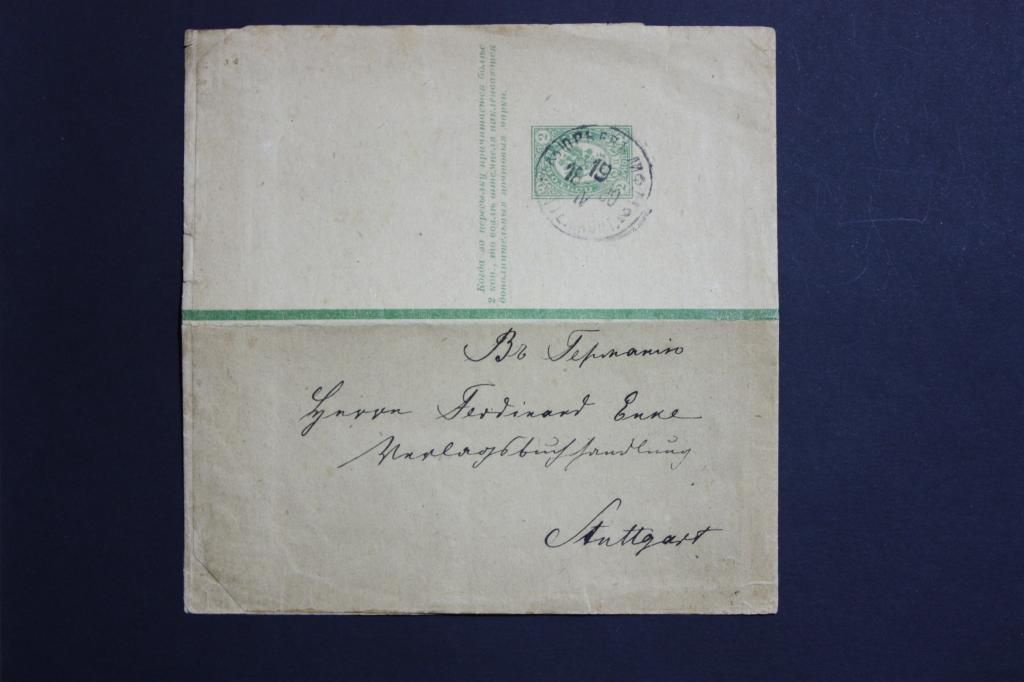 Когда за пересылку причитается болѣе
2 коп., то возлѣ штемпеля наклеиваются
дополнительныя почтовыя марки.
2
ЮРЬЕВЪ
19
IV
Въ Германію
Herrn Ferdinand Enke
Verlagsbuchhandlung
Stuttgart